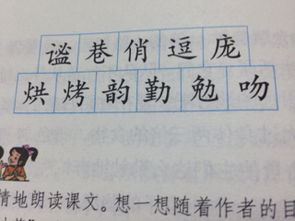 谧巷俏逗庞
烘烤韵勤勉吻
情地朗读课文。想一想随着作者的目